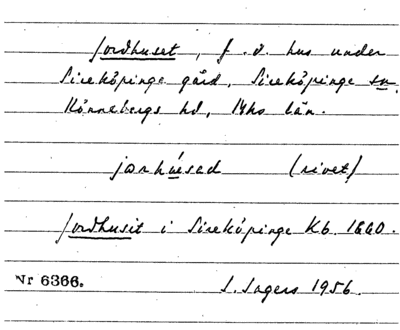 Jordhuset, f.d. hus under
Sireköpinge gård, Sireköpinge sn,
Rönnebergs hd, Mhs län.
jorhúsad (rivet)
Jordhusit i Sireköpinge Kb. 1660.
Nr 6366.
S. Sagers 1956.